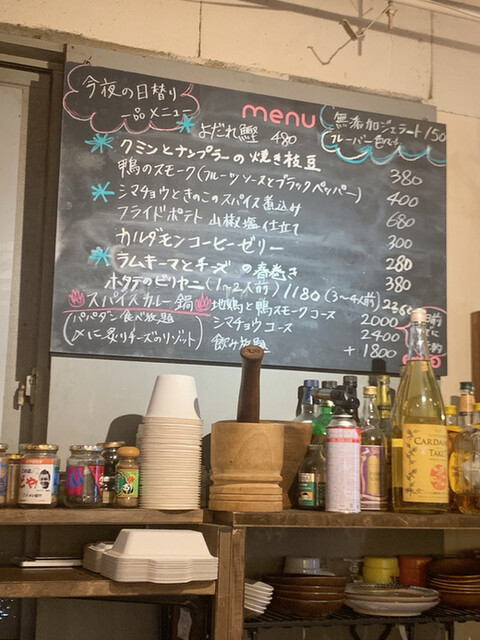 今夜の日替り
一品メニュー
menu
無添加ジェラート150
フレーバー
よだれ鰹 480
クミンとナンプラーの焼き枝豆 380
鴨のスモーク(フルーツソースとブラックペッパー) 400
シマチョウときのこのスパイス煮込み 680
フライドポテト 山椒塩仕立て 300
カルダモンコーヒーゼリー 280
ラムキーマとチーズの春巻き 380
ホタテのビリヤニ(1〜2人前)1180(3〜4人前)2260
スパイスカレー鍋
地鶏と鴨スモークコース 2000
パパダン食べ放題
シマチョウコース 2400
(〆に炙りチーズのリゾット)
飲み放題 +1800
CARDAMOM
TAKE